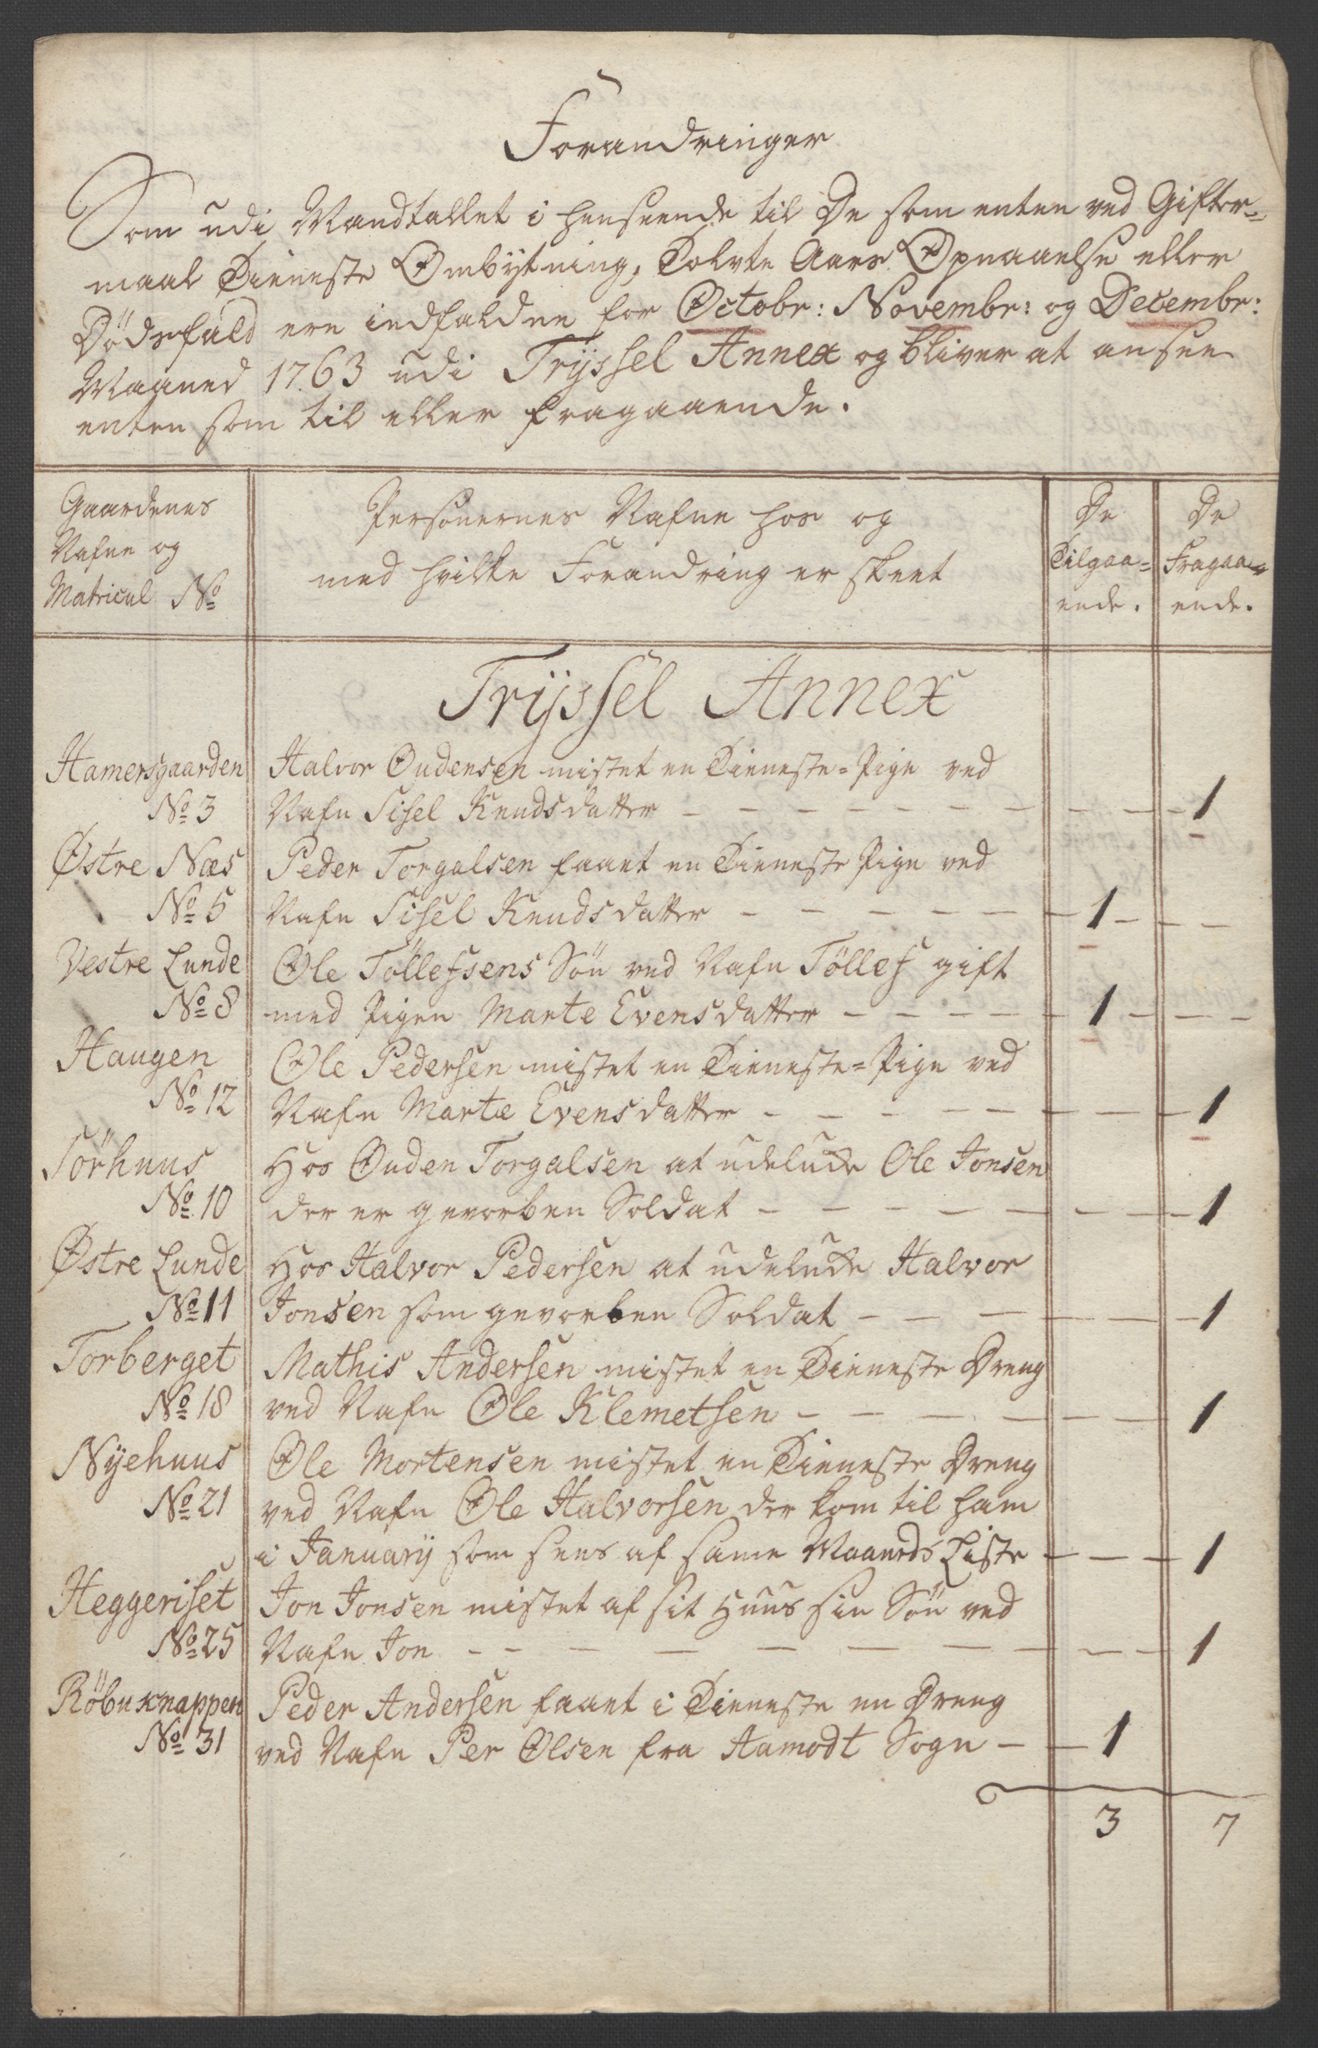 Forandringer
Som udi Mandtallet i henseende til De som enten ved Gifter=
maal Tieneste Ombytning, Tolvte Aars Opnaaelse eller
Dødsfald ere indfalden for Octobr: Novembr: og Decembr:
Maaned 1763 udi Tryssel Annex og bliver at ansee
enten som til eller fragaaende.
Gaardenes
Nafne og
Matricul No
Personernes Nafne hos og
med hvilke Forandring er skeet
De
Tilgaa=
ende.
De
Fragaa=
ende.
Tryssel Annex
Hamersgaarden Halvor Oudensen mistet en Tieneste=Pige ved
No 3 Nafn Sisel Knudsdatter - - - 1
Østre Næs Peder Torgalsen faaet en Tieneste Pige ved
No 5 Nafn Sisel Knudsdatter - - - 1
Vestre Lunde Ole Töllefsens Sön ved Nafn Töllef gift
No 8 med Pigen Marte Evensdatter - - - 1
Haugen Ole Pedersen mistet en Tieneste=Pige ved
No 12 Nafn Marte Evensdatter - - - 1
Sörhuus Hos Ouden Torgalsen at udelude Ole Jonsen
No 10 der er gevorben Soldat - - - 1
Østre Lunde Hos Halvor Pedersen at udelude Halvor
No 11 Jonsen som gevorben Soldat - - - 1
Torberget Mathis Andersen mistet en Tieneste Dreng
No 18 ved Nafn Ole Klemetsen - - - 1
Nyehuus Ole Mortensen mistet en Tieneste Dreng
No 21 ved Nafn Ole Halvorsen der kom til ham
i Januarij som sees af same Maaneds Liste - - - 1
Heggeriset Jon Jonsen mistet af sit Huus sin Sön ved
No 25 Nafn Jon - - - 1
Röbuknappen Peder Andersen faaet i Tieneste en Dreng
No 31 ved Nafn Per Olsen fra Aamodt Sogn - - 1
3 7